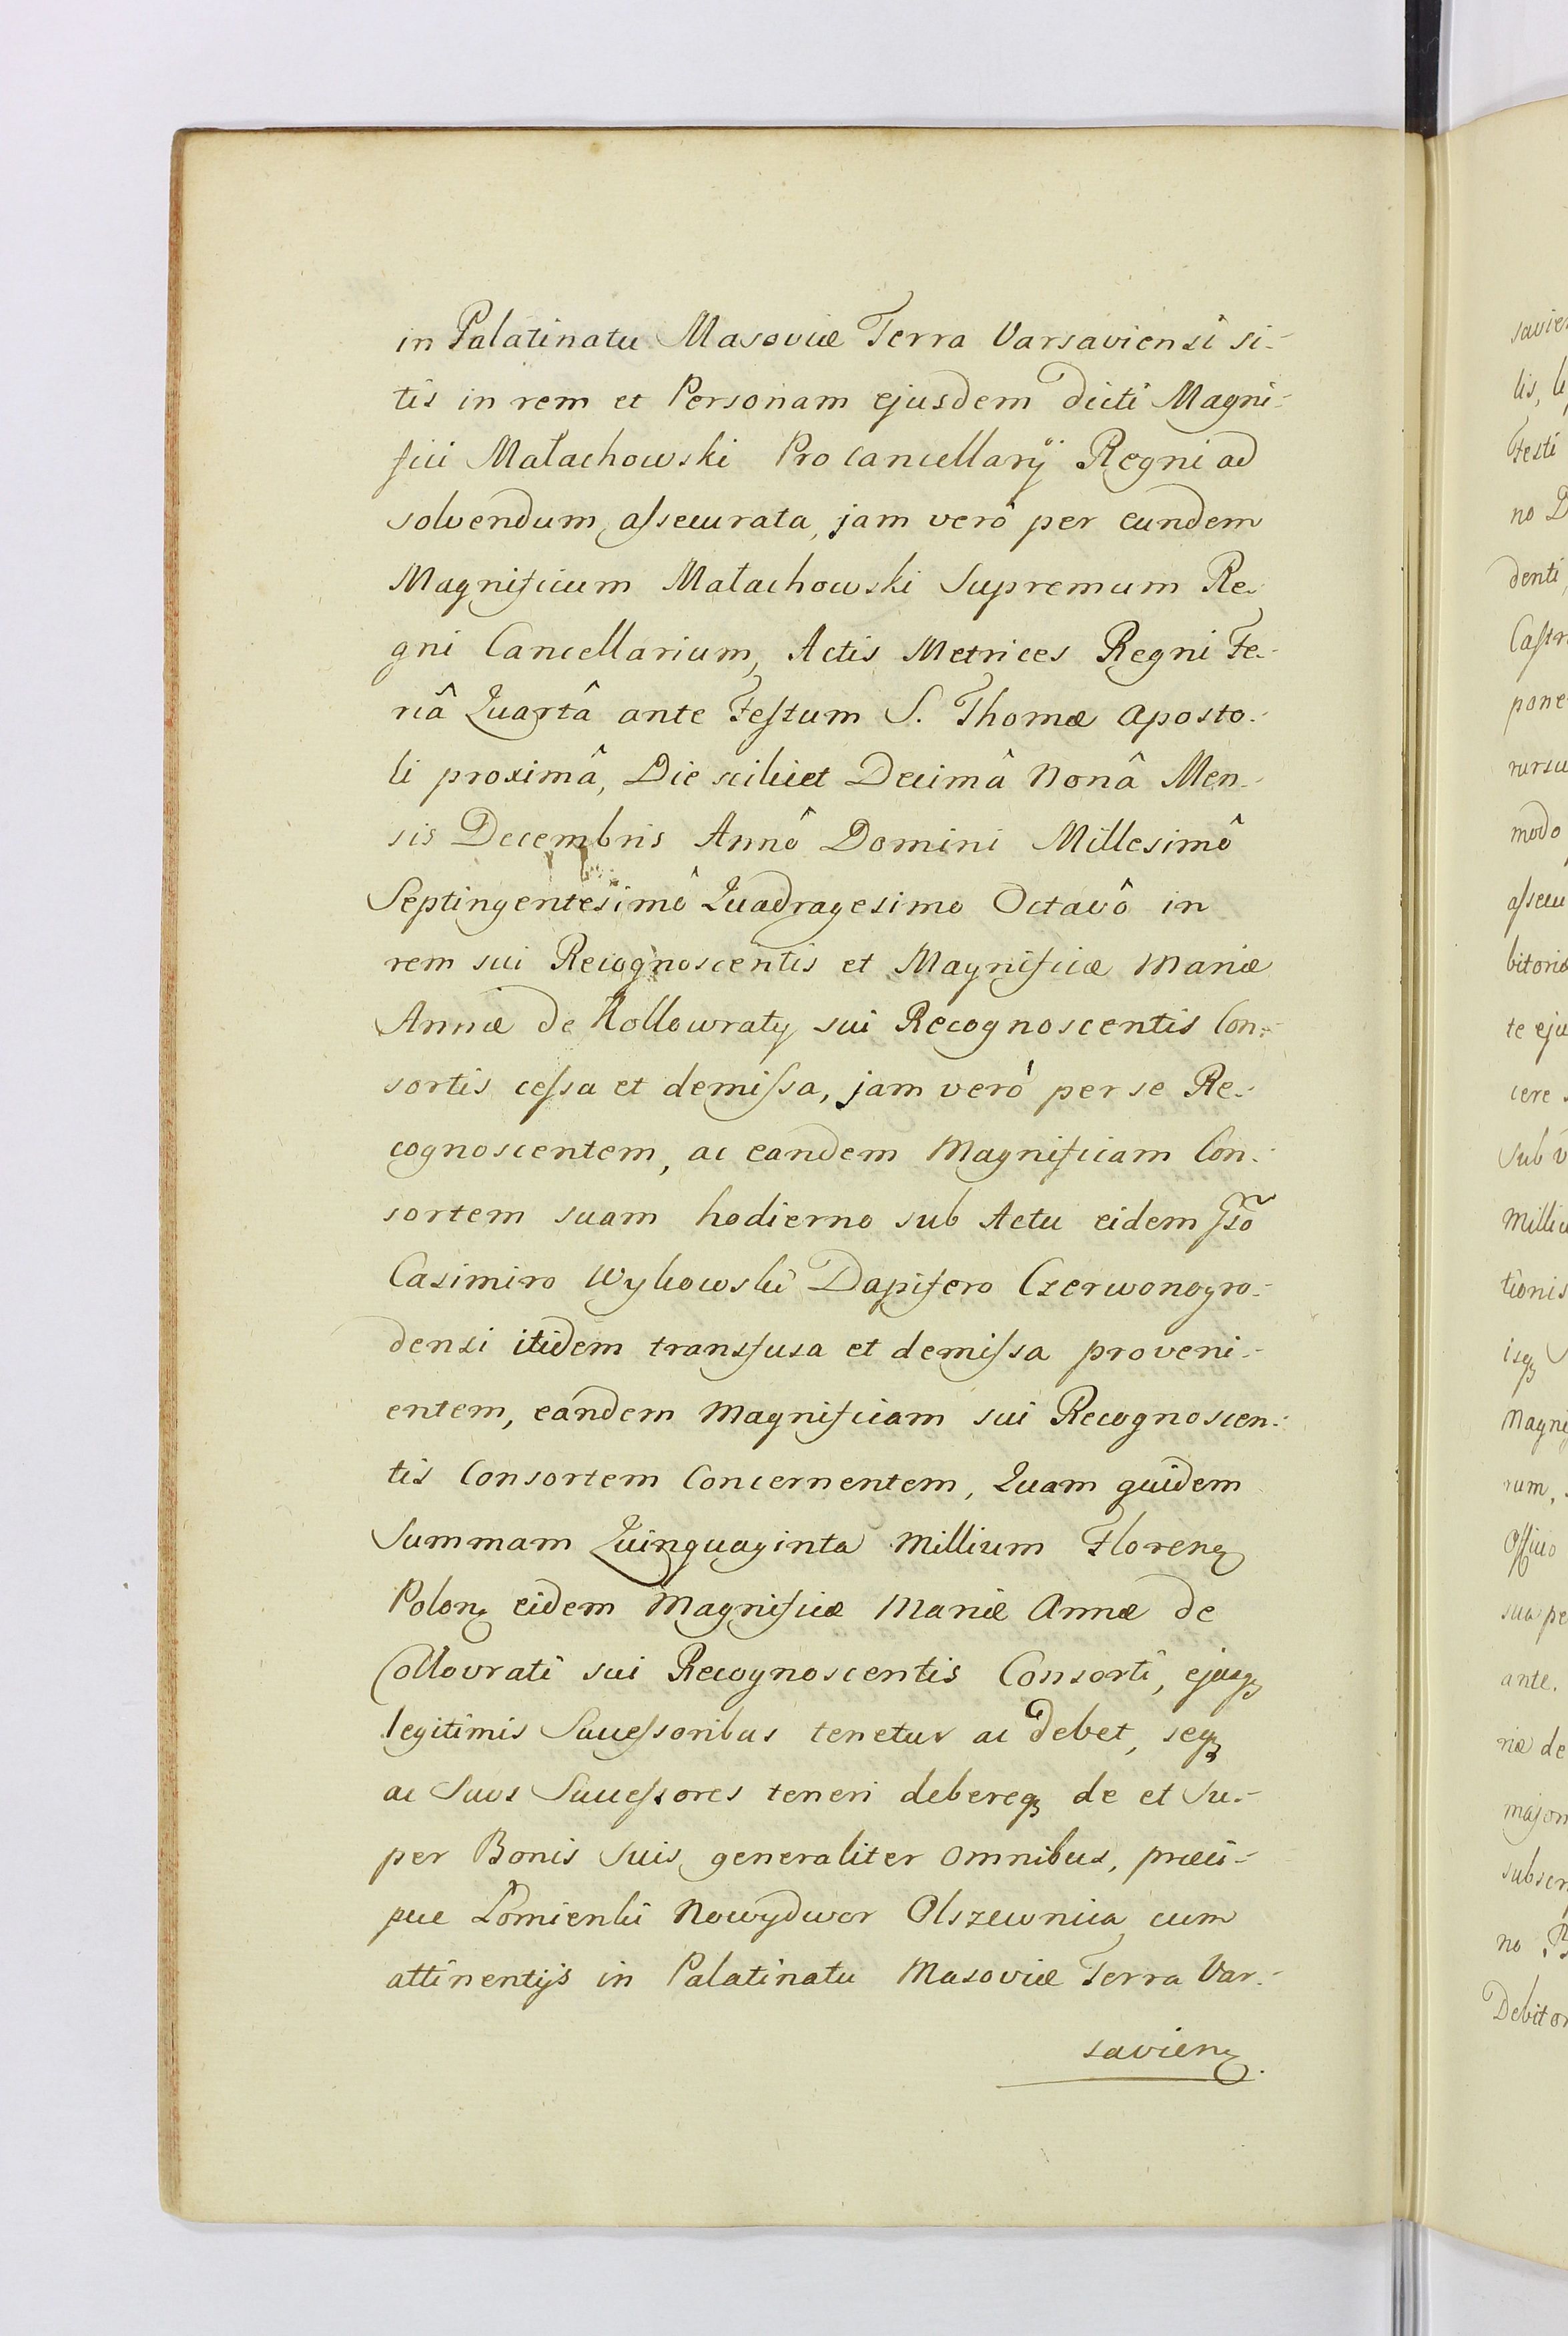 in Palatinatu Masoviæ Terra Varsaviensi si-
tis in rem et Personam ejusdem dicti Magni-
fici Małachowski Pro Cancellarÿ Regni ad
solvendum assecurata, jam verô per eundem
Magnificum Małachowski Supremum Re-
gni Cancellarium, Actis Metrices Regni Fe-
riâ Quartâ ante Festum S. Thomæ Aposto-
li proximâ, Die scilicet Decimâ Nonâ Men-
sis Decembris Annô Domini Millesimô
Septingentesimô Quadragesimo Octavô in
rem sui Recognoscentis et Magnificæ Mariæ
Annæ de Kollowraty sui Recognoscentis Con-
sortis cessa et demissa, jam verò per se Re-
cognoscentem, ac eandem Magnificam Con-
sortem suam hodierno sub Actu eidem
Casimiro Wykowski Dapifero Czerwonogro-
densi itidem transfusa et demissa proveni-
entem, eandem Magnificam sui Recognoscen-
tis Consortem Concernentem, Quam quidem
Summam Quinquaginta Millium Floren
Polon eidem Magnificæ Mariæ Annæ de
Collovrati sui Recognoscentis Consorti, ejusq
legitimis Successoribus tenetur ac debet, seq
ac Suos Successores teneri debereq de et Su-
per Bonis Suis generaliter omnibus, præci-
pue Łomienki Nowydwor Olszewnica cum
attinentijs in Palatinatu Masoviæ Terra Var-
savien
savien
lis,
Festi
no
denti
Castr
pone
rursu
modo
assecu
bitoriæ
te eju
cere
Sub
Milliu
tionis
isq
Magni
rum,
Officio
sua pe
ante.
riæ de
major
subscr
no
Debitor